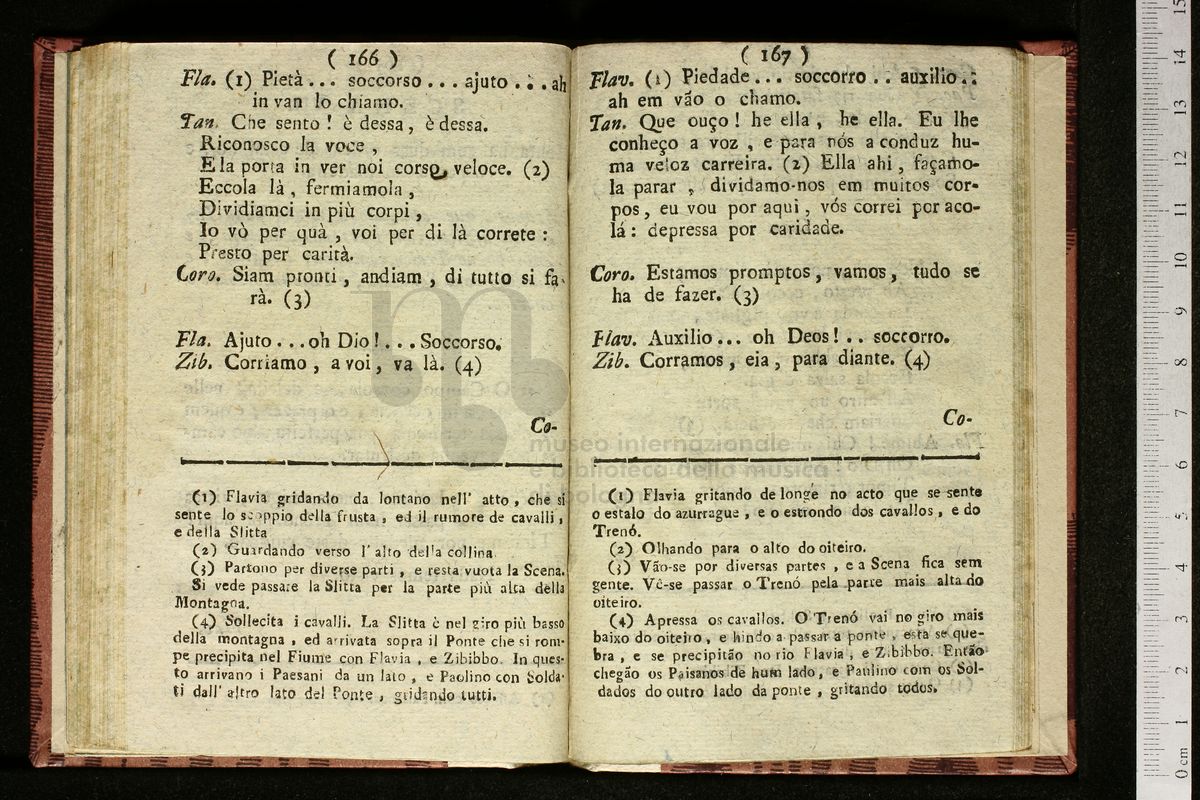 ( 166 )
Fla. (1) Pietà... soccorso... ajuto... ah
in van lo chiamo.
Tan. Che sento ! è dessa, è dessa.
Riconosco la voce ,
E la porta in ver noi corso veloce. (2)
Eccola là, fermiamola ,
Dividiamci in più corpi ,
Io vò per quà , voi per di là correte :
Presto per carità.
Coro. Siam pronti , andiam , di tutto si fa-
rà. (3)
Fla. Ajuto... oh Dio !... Soccorso.
Zib. Corriamo , a voi , va là. (4)
Co-
(1) Flavia gridando da lontano nell' atto , che si
sente lo scoppio della frusta , ed il rumore de cavalli ,
e della Slitta
(2) Guardando verso l' alto della collina.
(3) Partono per diverse parti , e resta vuota la Scena.
Si vede passare la Slitta per la parte più alta della
Montagna.
(4) Sollecita i cavalli. La Slitta è nel giro più basso
della montagna , ed arrivata sopra il Ponte che si rom-
pe precipita nel Fiume con Flavia , e Zibibbo. In ques-
to arrivano i Paesani da un lato , e Paolino con Solda-
ti dall' altro lato del Ponte , gridando tutti.
( 167 )
Flav. (1) Piedade... soccorro .. auxilio..
ah em vão o chamo.
Tan. Que ouço ! he ella , he ella. Eu lhe
conheço a voz , e para nós a conduz hu-
ma veloz carreira. (2) Ella ahi , façamo-
la parar , dividamo-nos em muitos cor-
pos, eu vou por aqui , vós correi por aco-
lá : depressa por caridade.
Coro. Estamos promptos, vamos, tudo se
ha de fazer. (3)
Flav. Auxilio... oh Deos !.. soccorro.
Zib. Corramos , eia , para diante. (4)
Co-
(1) Flavia gritando de longe no acto que se sente
o estalo do azurrague , e o estrondo dos cavallos , e do
Trenó.
(2) Olhando para o alto do oiteiro.
(3) Vão-se por diversas partes , e a Scena fica sem
gente. Vê-se passar o Trenó pela parte mais alta do
oiteiro.
(4) Apressa os cavallos. O Trenó vai no giro mais
baixo do oiteiro , e hindo a passar a ponte , esta se que-
bra , e se precipitão no rio Flavia , e Zibibbo. Então
chegão os Paisanos de hum lado, e Paulino com os Sol-
dados do outro lado da ponte , gritando todos.
museo internazionale
e biblioteca della musica
0 cm 1 2 3 4 5 6 7 8 9 10 11 12 13 14 15